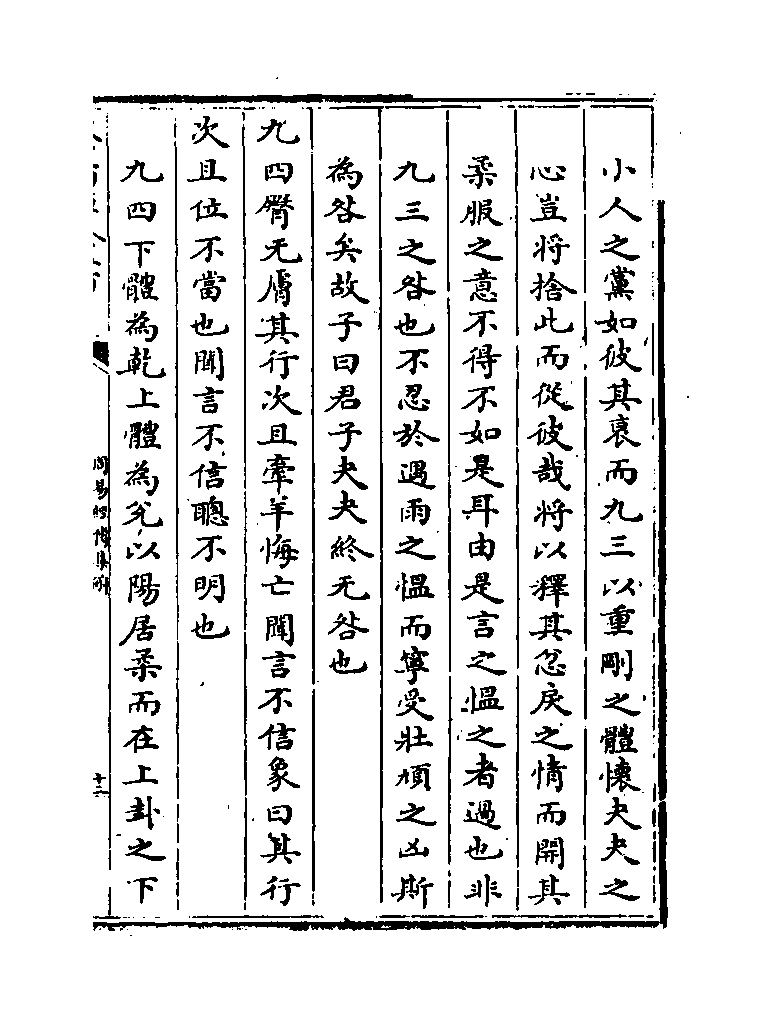 小人之黨如彼其衰而九三以重剛之體懷夬夬之
心豈將捨此而從彼哉將以釋其忿戾之情而開其
柔服之意不得不如是耳由是言之愠之者過也非
九三之咎也不忍於遇雨之愠而寧受壯頄之凶斯
為咎矣故子曰君子夬夬終无咎也
九四臀无膚其行次且牽羊悔亡聞言不信象曰其行
次且位不當也聞言不信聰不明也
九四下體為乾上體為兊以陽居柔而在上卦之下
周易經傳集解
十二